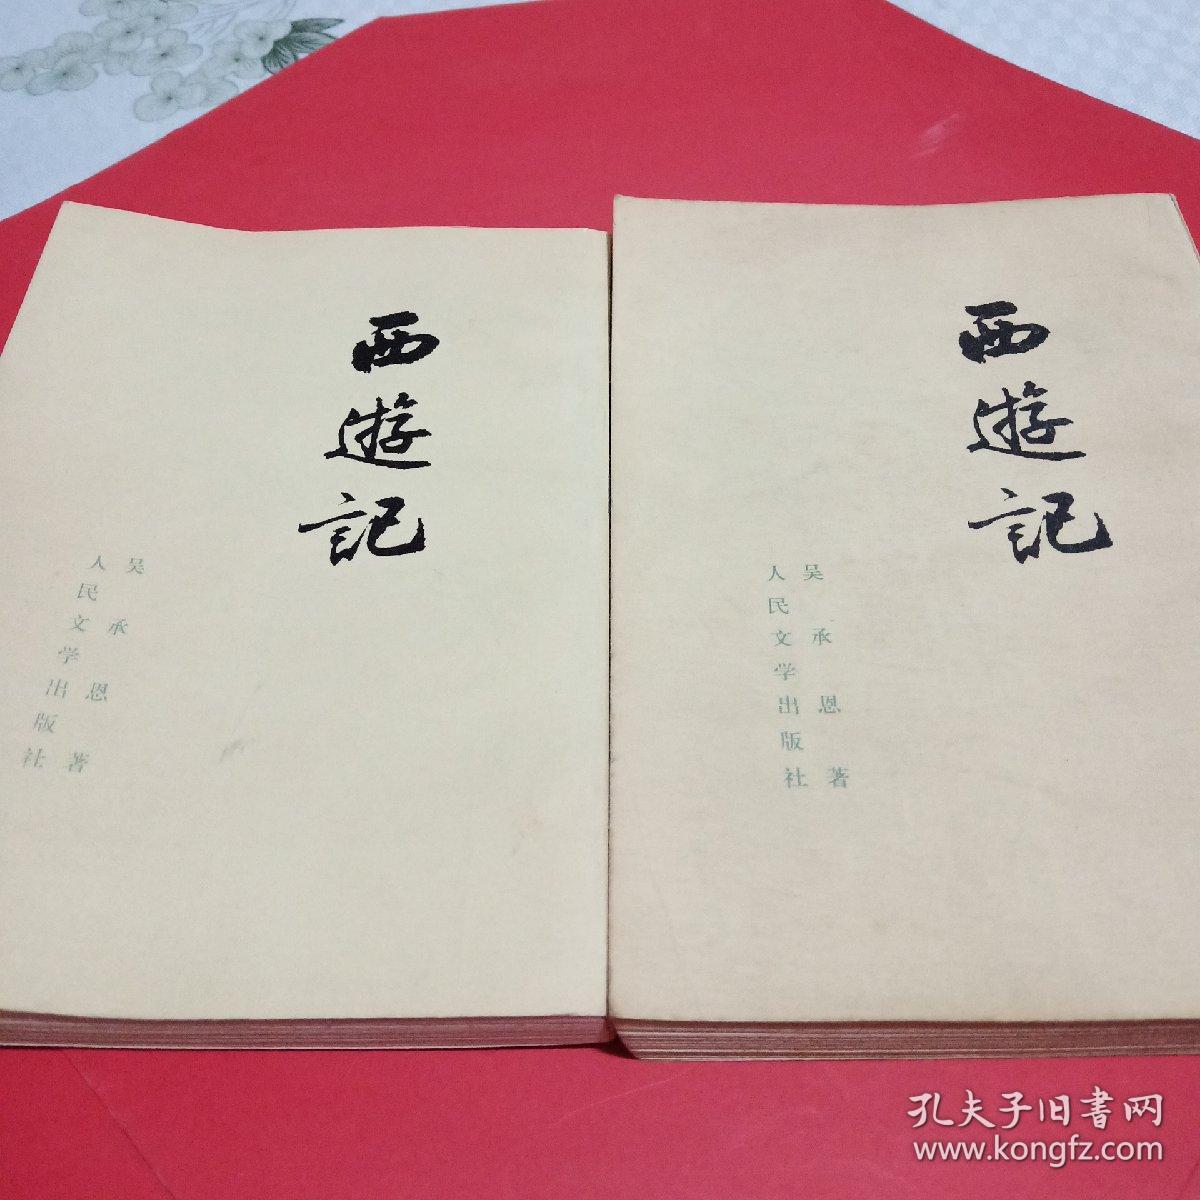 西遊記
吴承恩著
人民文学出版社
西遊記
吴承恩著
人民文学出版社
孔夫子旧書网
www.kongfz.com